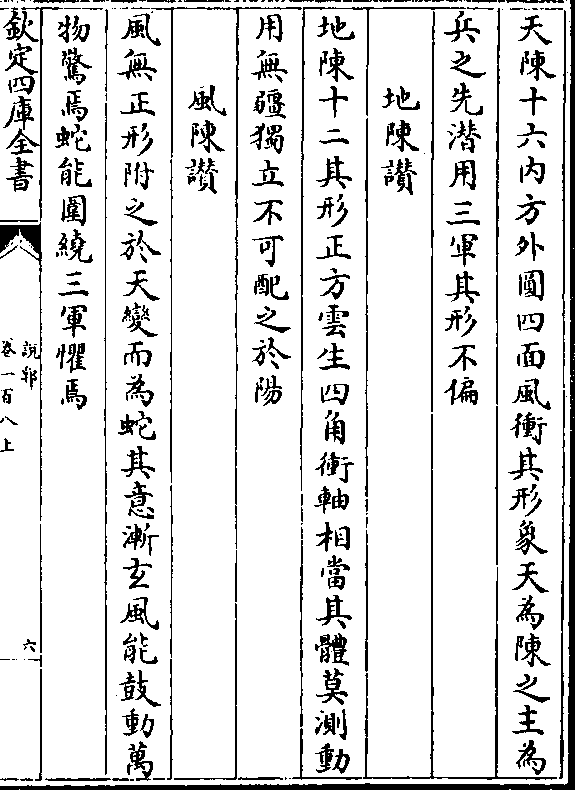 天陳十六内方外圓四面風衝其形象天為陳之主為
兵之先潜用三軍其形不偏
地陳讚
地陳十二其形正方雲生四角衝軸相當其體莫測動
用無疆獨立不可配之於陽
風陳讚
風無正形附之於天變而為蛇其意漸玄風能鼓動萬
物驚焉蛇能圍繞三軍懼焉
欽定四庫全書
說郛
卷一百八上
六